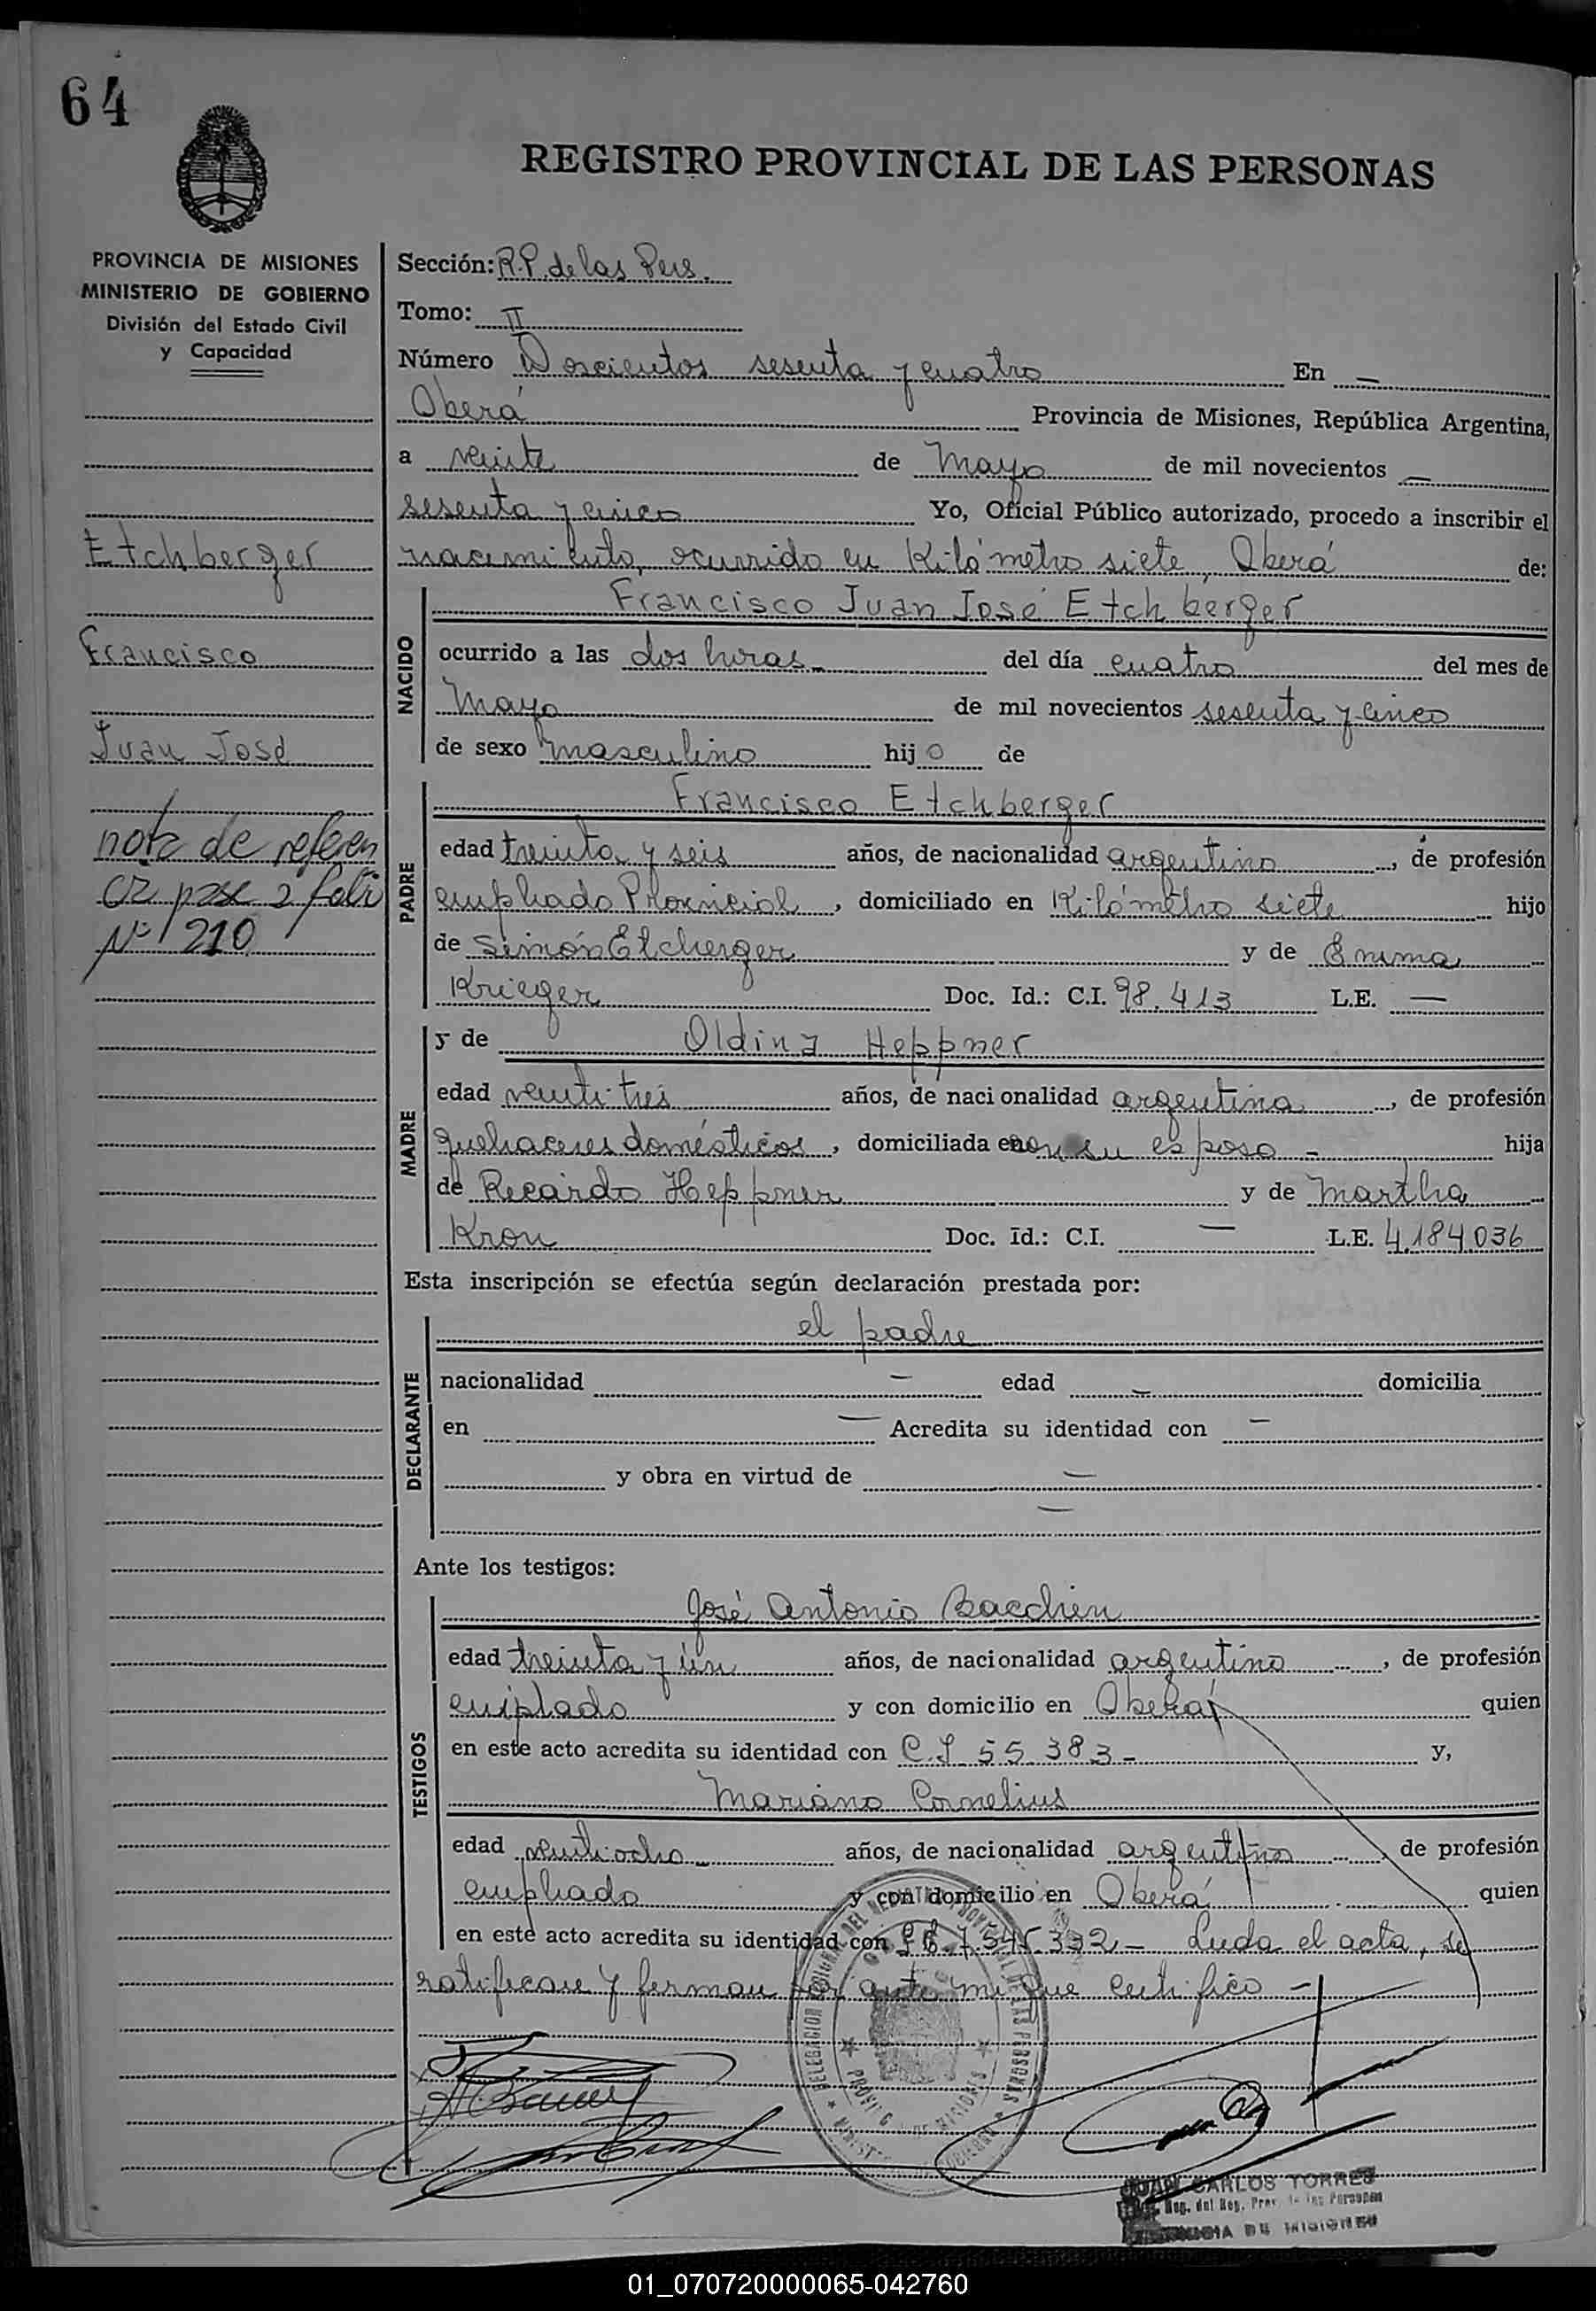 64
REGISTRO PROVINCIAL DE LAS PERSONAS
PROVINCIA DE MISIONES
MINISTERIO DE GOBIERNO
División del Estado Civil
y Capacidad
Etchberger
Francisco
Juan José
nota de referen
cia pase a folio
Nº 210
Sección: R.P. de las Pers.
Tomo: II
Número Doscientos sesenta y cuatro En —
Oberá Provincia de Misiones, República Argentina,
a veinte de Mayo de mil novecientos —
sesenta y cinco Yo, Oficial Público autorizado, procedo a inscribir el
nacimiento, ocurrido en Kilómetro siete, Oberá de:
NACIDO
Francisco Juan José Etchberger
ocurrido a las dos horas — del día cuatro del mes de
Mayo de mil novecientos sesenta y cinco
de sexo masculino hijo de
PADRE
Francisco Etchberger
edad treinta y seis años, de nacionalidad argentino, de profesión
empleado Provincial, domiciliado en Kilómetro siete hijo
de Simón Etcherger y de Emma
Krieger Doc. Id.: C.I. 98.413 L.E. —
MADRE
y de Oldina Heppner
edad veintitrés años, de nacionalidad argentina, de profesión
quehaceres domésticos, domiciliada con su esposo - hija
de Ricardo Heppner y de Martha
Kron Doc. Id.: C.I. — L.E. 4.184.036
Esta inscripción se efectúa según declaración prestada por:
DECLARANTE
el padre
nacionalidad — edad — domicilia
en — Acredita su identidad con —
y obra en virtud de —
—
Ante los testigos:
TESTIGOS
José Antonio
edad treinta y un años, de nacionalidad argentino, de profesión
empleado y con domicilio en Oberá quien
en este acto acredita su identidad con C.I 55.383 - y,
Mariano Cornelius
edad veintiocho — años, de nacionalidad argentino, de profesión
empleado y con domicilio en Oberá quien
en este acto acredita su identidad con 7.545.332 - Leida el acta, se
ratifican y firman por ante mi que certifico -
DELEGACION REGIONAL DEL REGISTRO PROVINCIAL DE LAS PERSONAS
PROVINCIA DE MISIONES
MINISTERIO DE GOBIERNO
JUAN CARLOS TORRES
Reg. del Reg. Prov. de las Personas
PROVINCIA DE MISIONES
01_070720000065-042760